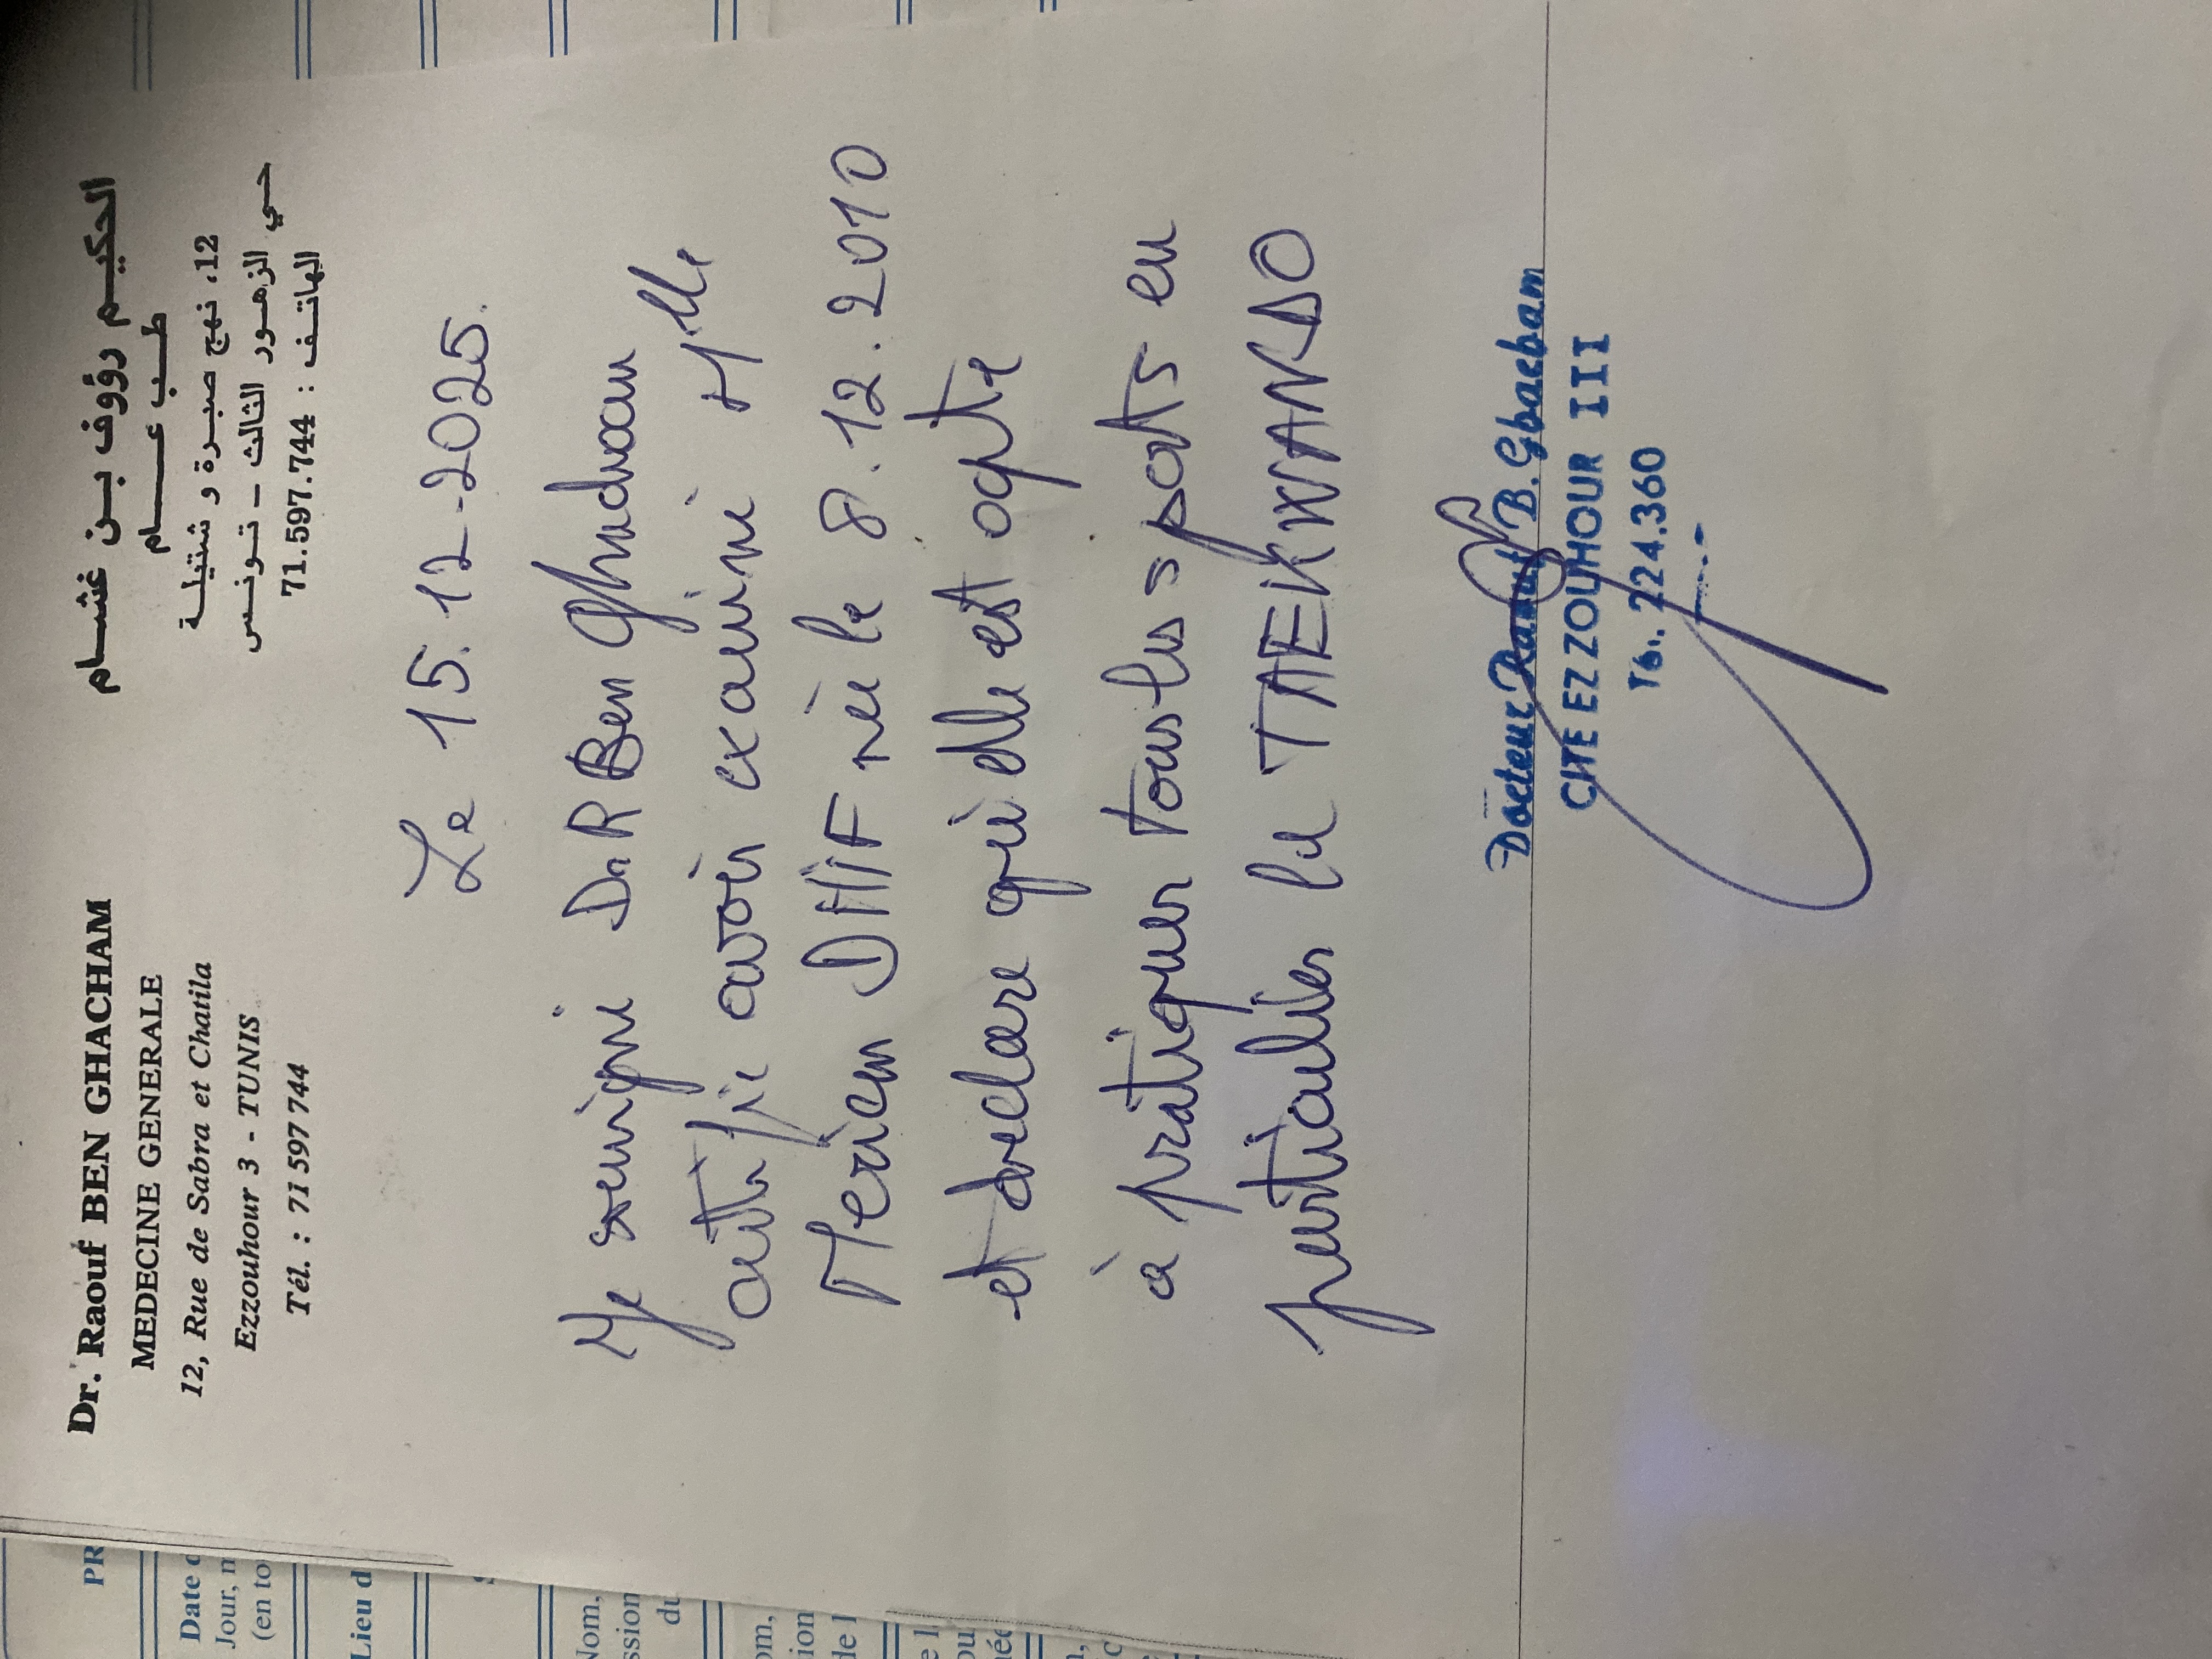 Dr. Raouf BEN GHACHAM
MEDECINE GENERALE
12, Rue de Sabra et Chatila
Ezzouhour 3 - TUNIS
Tél. : 71 597 744
الحكيم رؤوف بن غشام
طب عام
12، نهج صبرة و شتيلة
حي الزهور الثالث - تونس
الهاتف : 71.597.744
Le 15.12-2025.
Je Dr R Ben
avoir examiné Mlle
Meriem DHIF née le 8.12.2010
et declare qu'elle est apte
à pratiquer tous les sports en
particulier le TAEKWANDO
Docteur Raouf B. Ghacham
CITE EZZOUHOUR III
224.360
PR
Date
Jour, m
(en to
Lieu d
Nom,
ssion
du
om,
ion
de l